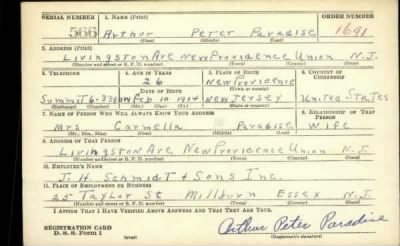 SERIAL NUMBER 1. NAME (Print) ORDER NUMBER
566 Arthur Peter Paradise 1691
(First) (Middle) (Last)
2. ADDRESS (Print)
Livingston Ave New Providence Union N.J.
(Number and street or R. F. D. number) (Town) (County) (State)
3. TELEPHONE 4. AGE IN YEARS 5. PLACE OF BIRTH 6. COUNTRY OF CITIZENSHIP
26 New Providence
DATE OF BIRTH (Town or county)
Summit 6- Feb 10 1914 New Jersey United States
(Exchange) (Number) (Mo.) (Day) (Yr.) (State or country)
7. NAME OF PERSON WHO WILL ALWAYS KNOW YOUR ADDRESS 8. RELATIONSHIP OF THAT PERSON
Mrs Carmella Paradise Wife
(Mr., Mrs., Miss) (First) (Middle) (Last)
9. ADDRESS OF THAT PERSON
Livingston Ave New Providence Union N.J.
(Number and street or R. F. D. number) (Town) (County) (State)
10. EMPLOYER'S NAME
J. H. Schmidt & Sons Inc.
11. PLACE OF EMPLOYMENT OR BUSINESS
25 Taylor St Millburn Essex N.J.
(Number and street or R. F. D. number) (Town) (County) (State)
I AFFIRM THAT I HAVE VERIFIED ABOVE ANSWERS AND THAT THEY ARE TRUE.
REGISTRATION CARD
D. S. S. Form 1 Arthur Peter Paradise
(Registrant's signature)